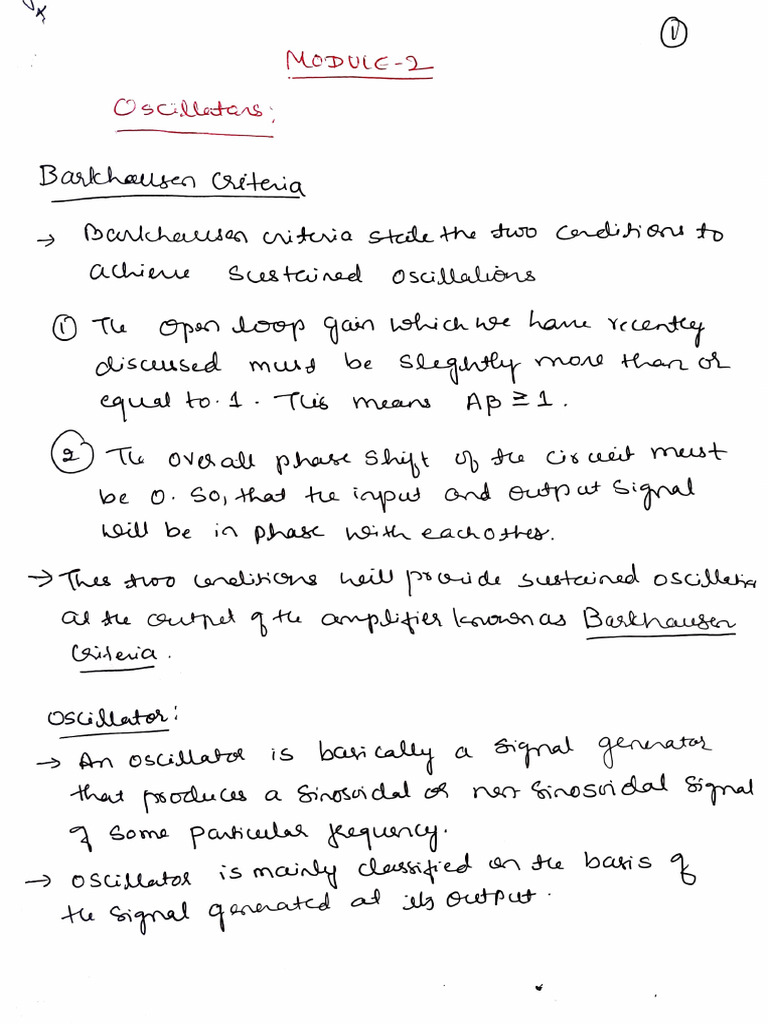 ①
MODULE-2
Oscillators:
Barkhausen Criteria
→ Barkhausen criteria state the two conditions to
achieve sustained oscillations
① The open loop gain which we have recently
discussed must be slightly more than or
equal to 1. This means Aβ ≥ 1.
② The overall phase shift of the circuit must
be 0. So, that the input and output signal
will be in phase with each other.
→ Thes two conditions will provide sustained oscillatio
at the output of the amplifier known as Barkhausen
Criteria.
Oscillator:
→ An oscillator is basically a signal generator
that produces a sinosoidal or non sinosoidal signal
of some particular frequency.
→ Oscillator is mainly classified on the basis of
the signal generated at its output.